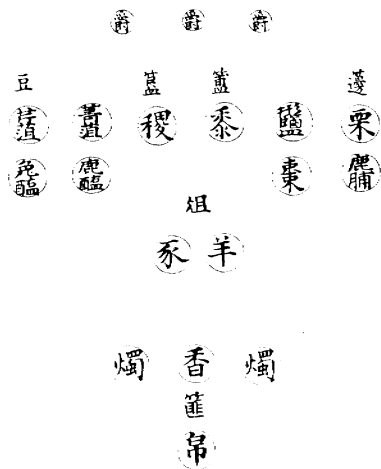 爵 爵 爵
豆 簋 簠 籩
芹菹 菁菹 稷 黍 鹽 栗
兔醢 鹿醢 棗 鹿脯
俎
豕 羊
燭 香 燭
篚
帛